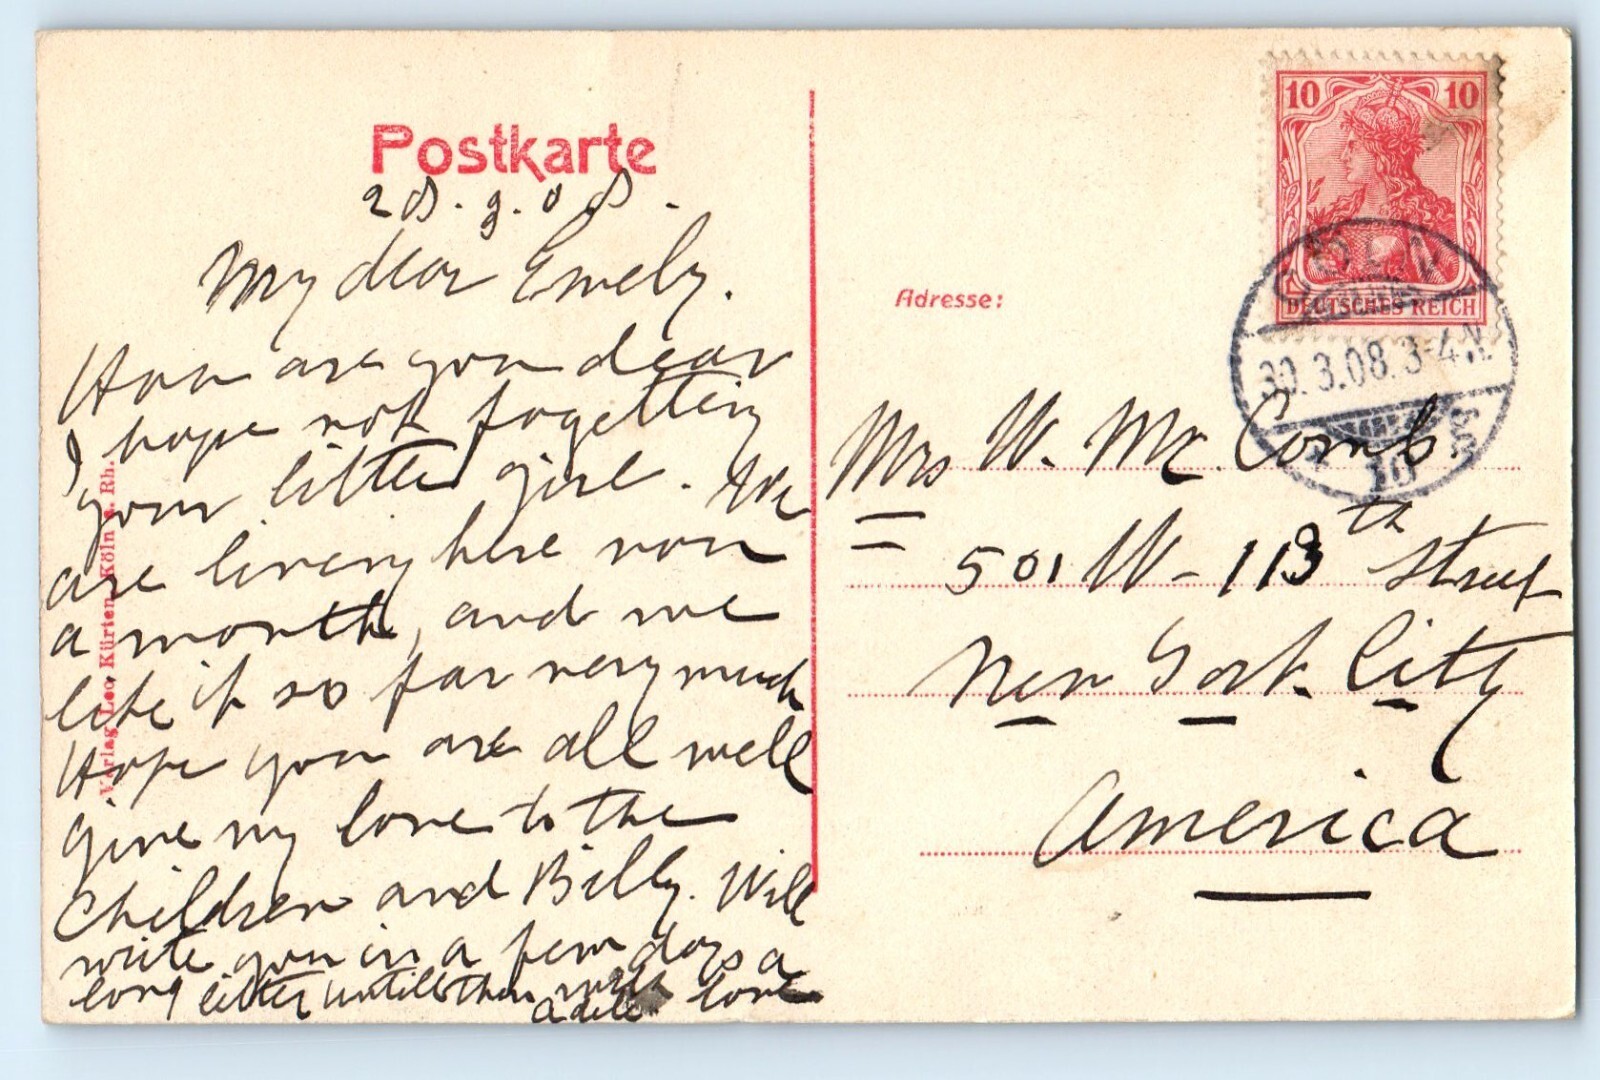 Postkarte
28.3.08.
My dear Emely.
How are you dear
I hope not fogetting
your little girl. We
are livering here now
a month, and we
like it so far very much
Hope you are all well
give my love to the
Children and Billy. Will
write you in a few days a
long letter untill than with love
Adele.
Verlag Leo Kürten, Köln a. Rh.
10 10
DEUTSCHES REICH
CÖLN
30.3.08.3-4N.
10
Adresse:
Mrs W. Mc. Comb.
501 W - 113th Street
New York City
America